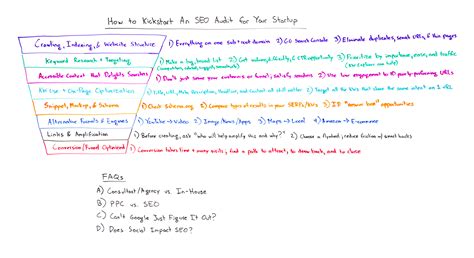 How to Kickstart An SEO Audit for Your Startup
Crawling, Indexing, & Website Structure
1) Everything on one sub+root domain 2) GO Search Console 3) Eliminate duplicates, search URLs, & thin pages
Keyword Research + Targeting
1) Make a big, broad list
2) Get volume, difficulty, CTR opportunity
3) Prioritize by importance, ease, and traffic
Accessible Content that Delights Searchers
1) Don't just serve your customers or funnel, satisfy searchers 2) Use low engagement to ID poorly-performing URLs
KW Use + On-Page Optimization
1) URL, Title, Meta Description, Headline, and Content all still matter 2) Target all the KWs that share the same intent on 1 URL
Snippet, Markup, & Schema
1) Check Schema.org 2) Compare types of results in your SERPs/KWs 3) ID "answer box" opportunities
Alternative Funnels & Engines
1) YouTube → Video 2) Image/News/Apps 3) Maps → Local 4) Amazon → E-commerce
Links & Amplification
1) Before creating, ask "who will help amplify this and why?" 2) Choose a flywheel; reduce friction at
Conversion/Funnel Optimized
1) Conversion takes time + many visits; find a path to attract, to draw back, and to close
FAQs
A) Consultant/Agency vs. In-House
B) PPC vs. SEO
C) Can't Google Just Figure It Out?
D) Does Social Impact SEO?